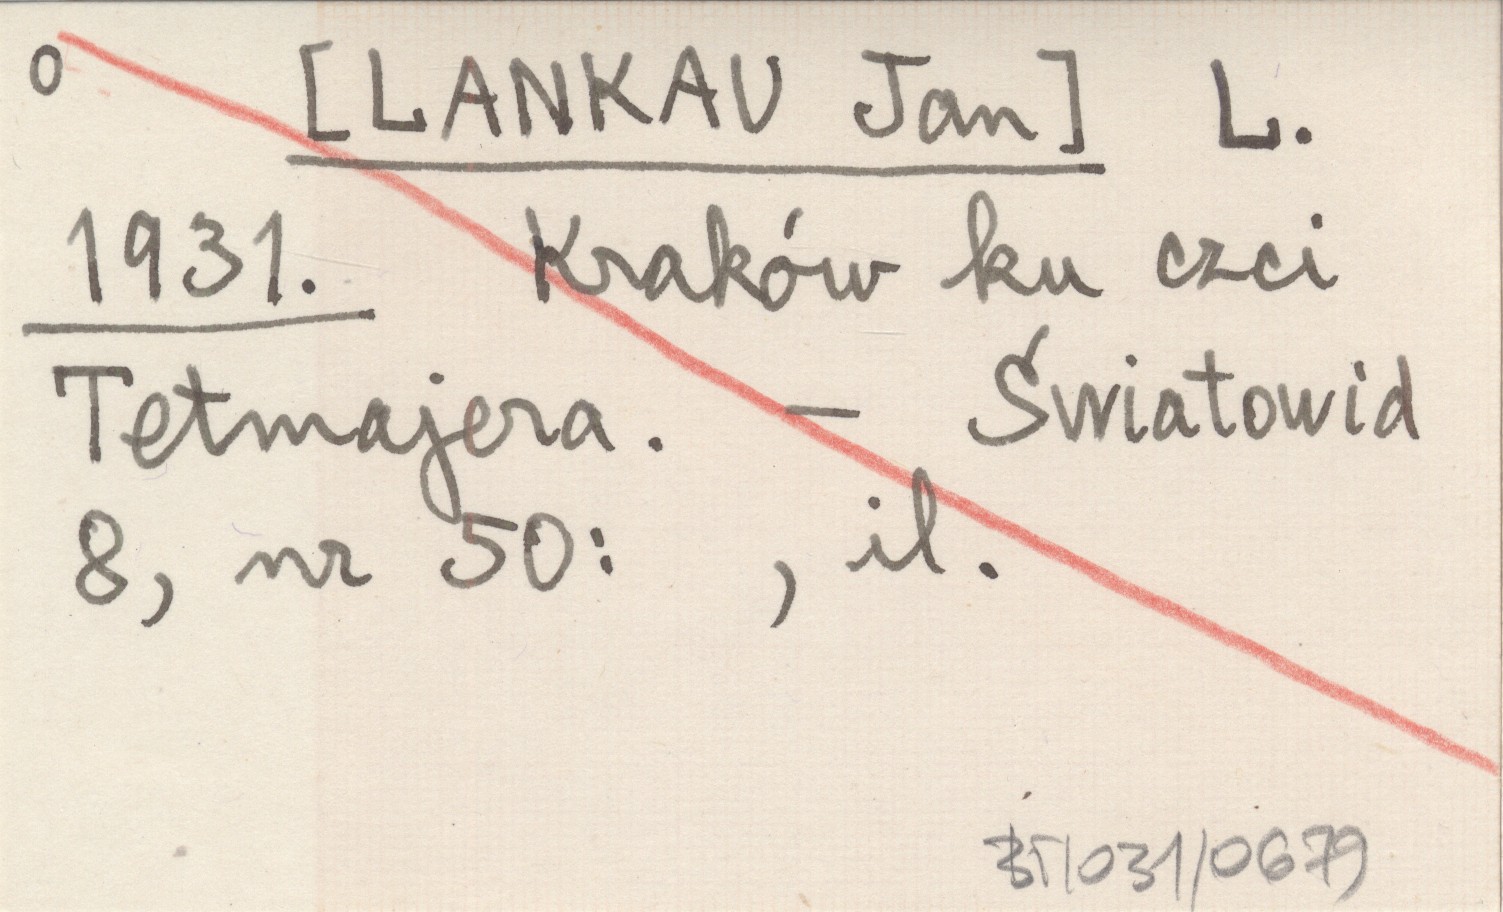 o [LANKAU Jan] L.
1931. Kraków ku czci
Tetmajera. — Światowid
8, nr 50: , il.
/031/0679